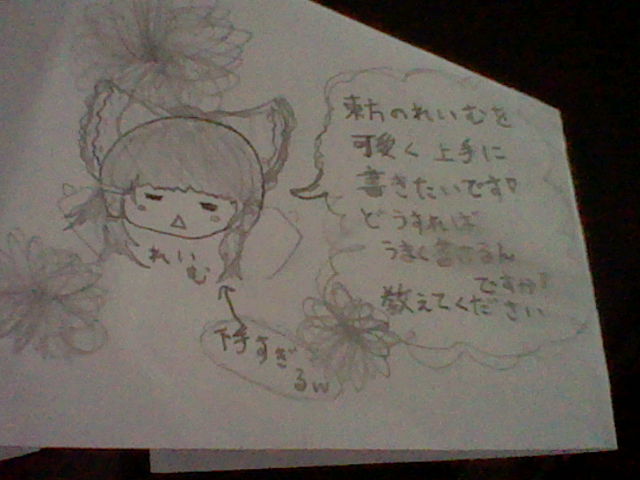 東方のれいむを
可愛く上手に
書きたいです!
どうすれば
うまく書けるん
ですか!
教えてください
れい
む
下手すぎ
るw